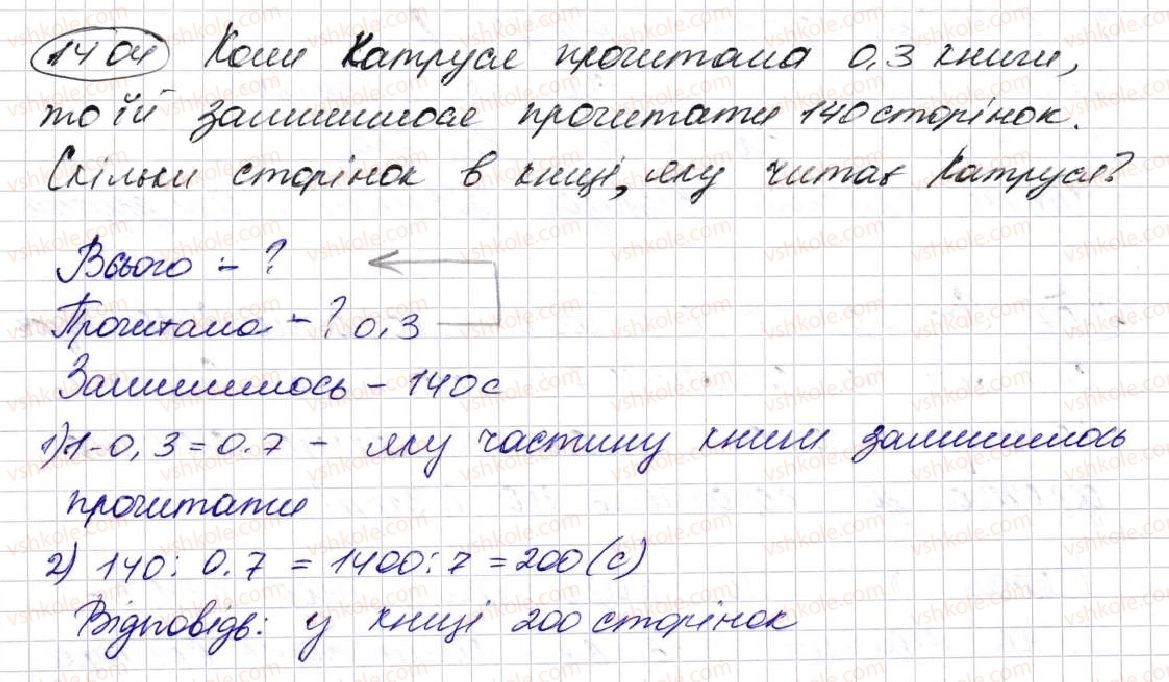 1404 Коли Катруся прочитала 0,3 книги,
то їй залишилося прочитати 140 сторінок.
Скільки сторінок в книці, яку читає Катруся?
Всього - ?
Прочитала - ? 0,3
Залишилось - 140 с
1) 1 - 0,3 = 0.7 - яку частину книги залишилось
прочитати
2) 140 : 0.7 = 1400 : 7 = 200 (с)
Відповідь: у книці 200 сторінок